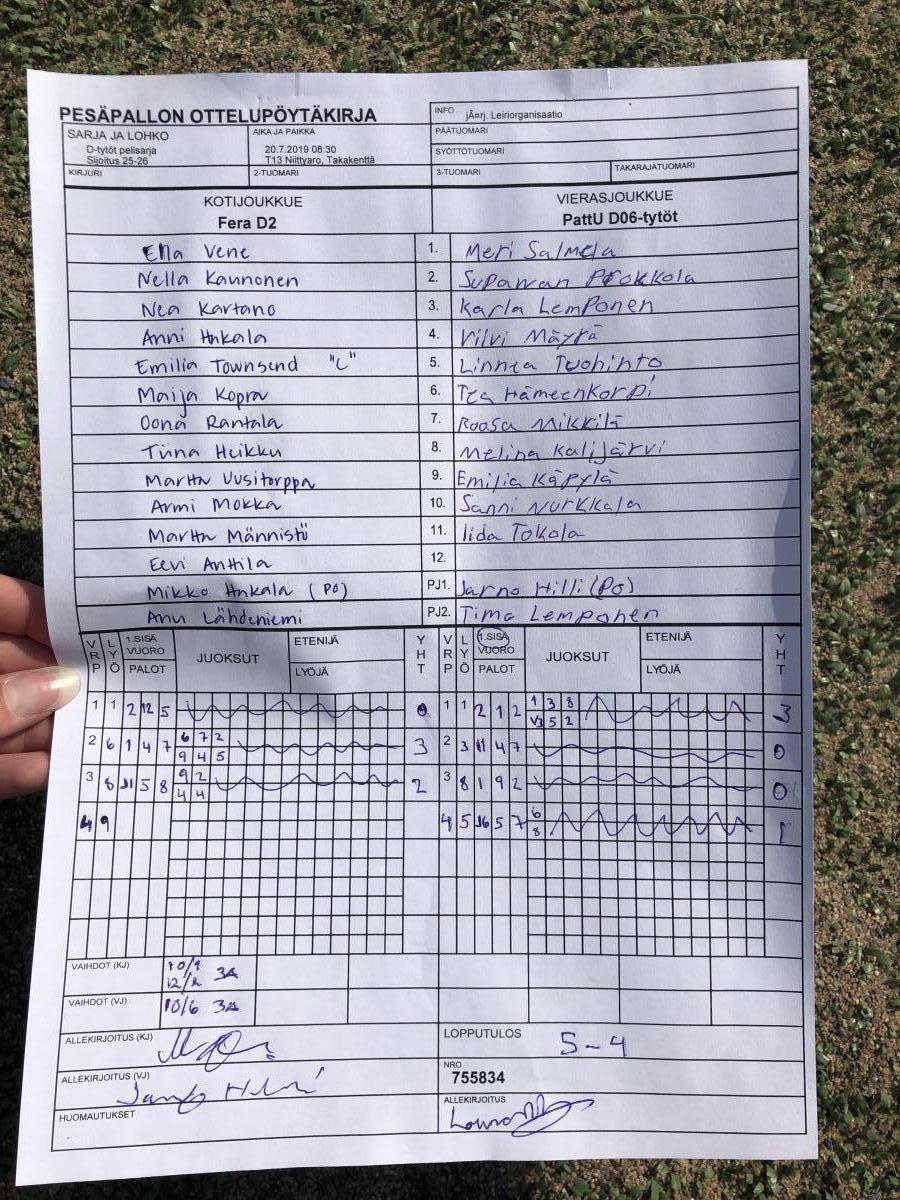 PESÄPALLON OTTELUPÖYTÄKIRJA
INFO jÃ¤rj. Leiriorganisaatio
SARJA JA LOHKO
D-tytöt pelisarja
Sijoitus 25-26
AIKA JA PAIKKA
20.7.2019 08:30
T13 Niittyaro, Takakenttä
PÄÄTUOMARI
SYÖTTÖTUOMARI
KIRJURI 2-TUOMARI 3-TUOMARI TAKARAJATUOMARI
KOTIJOUKKUE VIERASJOUKKUE
Fera D2 PattU D06-tytöt
Ella Vene 1. Meri Salmela
Nella Kaunonen 2. Supawan Prokkola
Nea Kartano 3. Karla Lemponen
Anni Hakala 4. Vilvi Mäyrä
Emilia Townsend "C" 5. Linnea Tuohinto
Maija Kopra 6. Tea Hämeenkorpi
Oona Rantala 7. Roosa Mikkilä
Tiina Heikku 8. Melina Kalijärvi
Martta Uusitorppa 9. Emilia Käpylä
Armi Mokka 10. Sanni Nurkkala
Martta Männistö 11. Iida Tokola
Eevi Anttila 12.
Mikko Hakala (PO) PJ1. Jarno Hilli (PO)
Anu Lähdeniemi PJ2. Timo Lemponen
VRP LYÖ 1.SISÄ VUORO PALOT JUOKSUT ETENIJÄ LYÖJÄ YHT VRP LYÖ 1.SISÄ VUORO PALOT JUOKSUT ETENIJÄ LYÖJÄ YHT
1 1 2 12 5 0 1 1 2 1 2 1 3 8 3
V3 5 2
2 6 1 4 7 6 7 2 3 2 3 11 4 7 0
9 4 5
3 8 11 5 8 9 2 2 3 8 1 9 2 0
4 4
4 9 4 5 16 5 7 6 1
8
VAIHDOT (KJ) 10/9
12/2 3A
VAIHDOT (VJ) 10/6 3A
ALLEKIRJOITUS (KJ) LOPPUTULOS 5-4
ALLEKIRJOITUS (VJ) NRO
755834
HUOMAUTUKSET ALLEKIRJOITUS